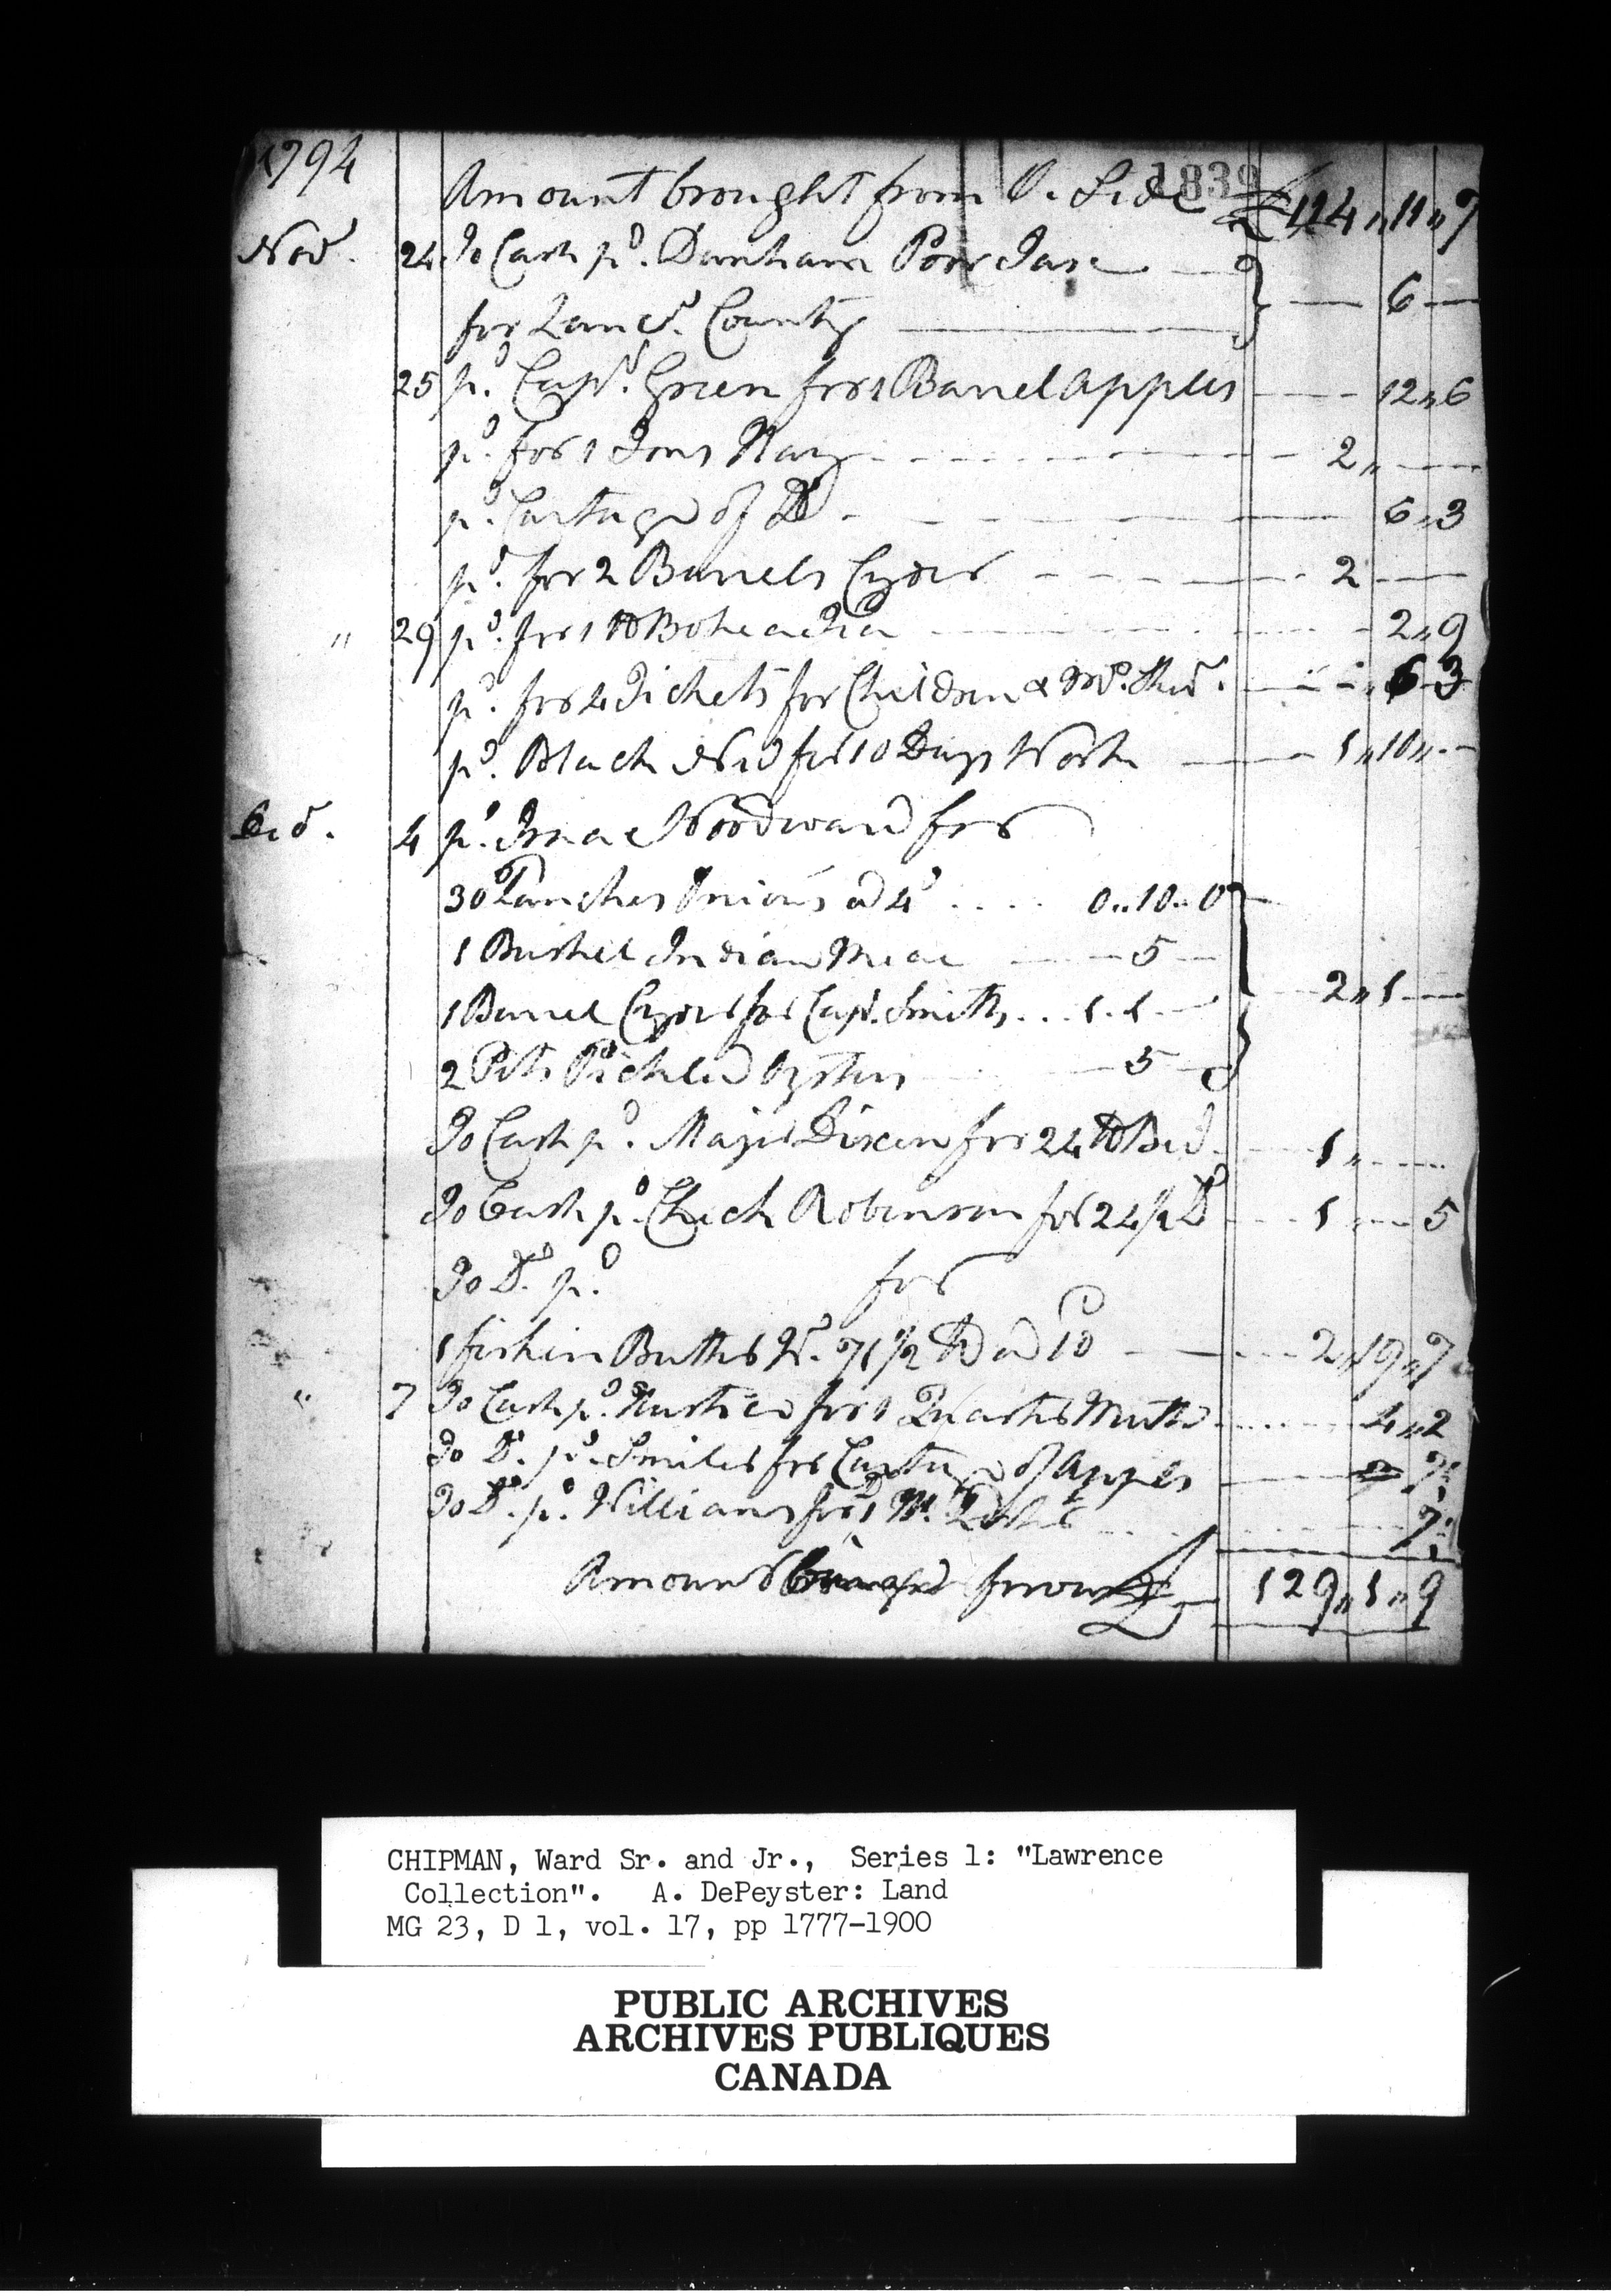 1794
1839
Amount brought from O. Side £ 114 „ 11 „ 7
Novr. 24 To Cash pd. Dunham Poor Tax
for Lancr. County 6
25 pd. Capt. Green for 1 Barrel Apples 12 „ 6
pd. for 1 Tons Hay 2 „
pd. Cartage of Do 6 „ 3
pd. for 2 Barrels Cyder 2
" 29 pd. for 1 lb Bohea Tea 2 „ 9
pd. for 4 Tickets for Children & 6 3
pd. Black Ned for 10 Days Work 1 „ 10 „
4 pd. Isaac Woodward for
30 Bunches Onions a 4d 0 .. 10 .. 0
1 Bushel Indian Meal 5
1 Barrel Cyder for Capt. Smith 1 . 1 2 „ 1
2 Pickled Oysters 5
To Cash pd. Major Dixon for 24 lb 1 „
To Cash pd. Robinson for 24 1/2 Do 1 5
To Do. pd. for
1 firkin Butter Wt. 71 1/2 lb a 10 2 „ 19 „ 7
" 7 To Cash pd. for 1 Quarter 4 „ 2
To Do. pd. Smiler for Cartage of Apples 7 1/2
To Do. pd. Williams for 1 7 1/2
Amount £ 129 „ 1 „ 9
CHIPMAN, Ward Sr. and Jr., Series 1: "Lawrence
Collection". A. DePeyster: Land
MG 23, D 1, vol. 17, pp 1777-1900
PUBLIC ARCHIVES
ARCHIVES PUBLIQUES
CANADA